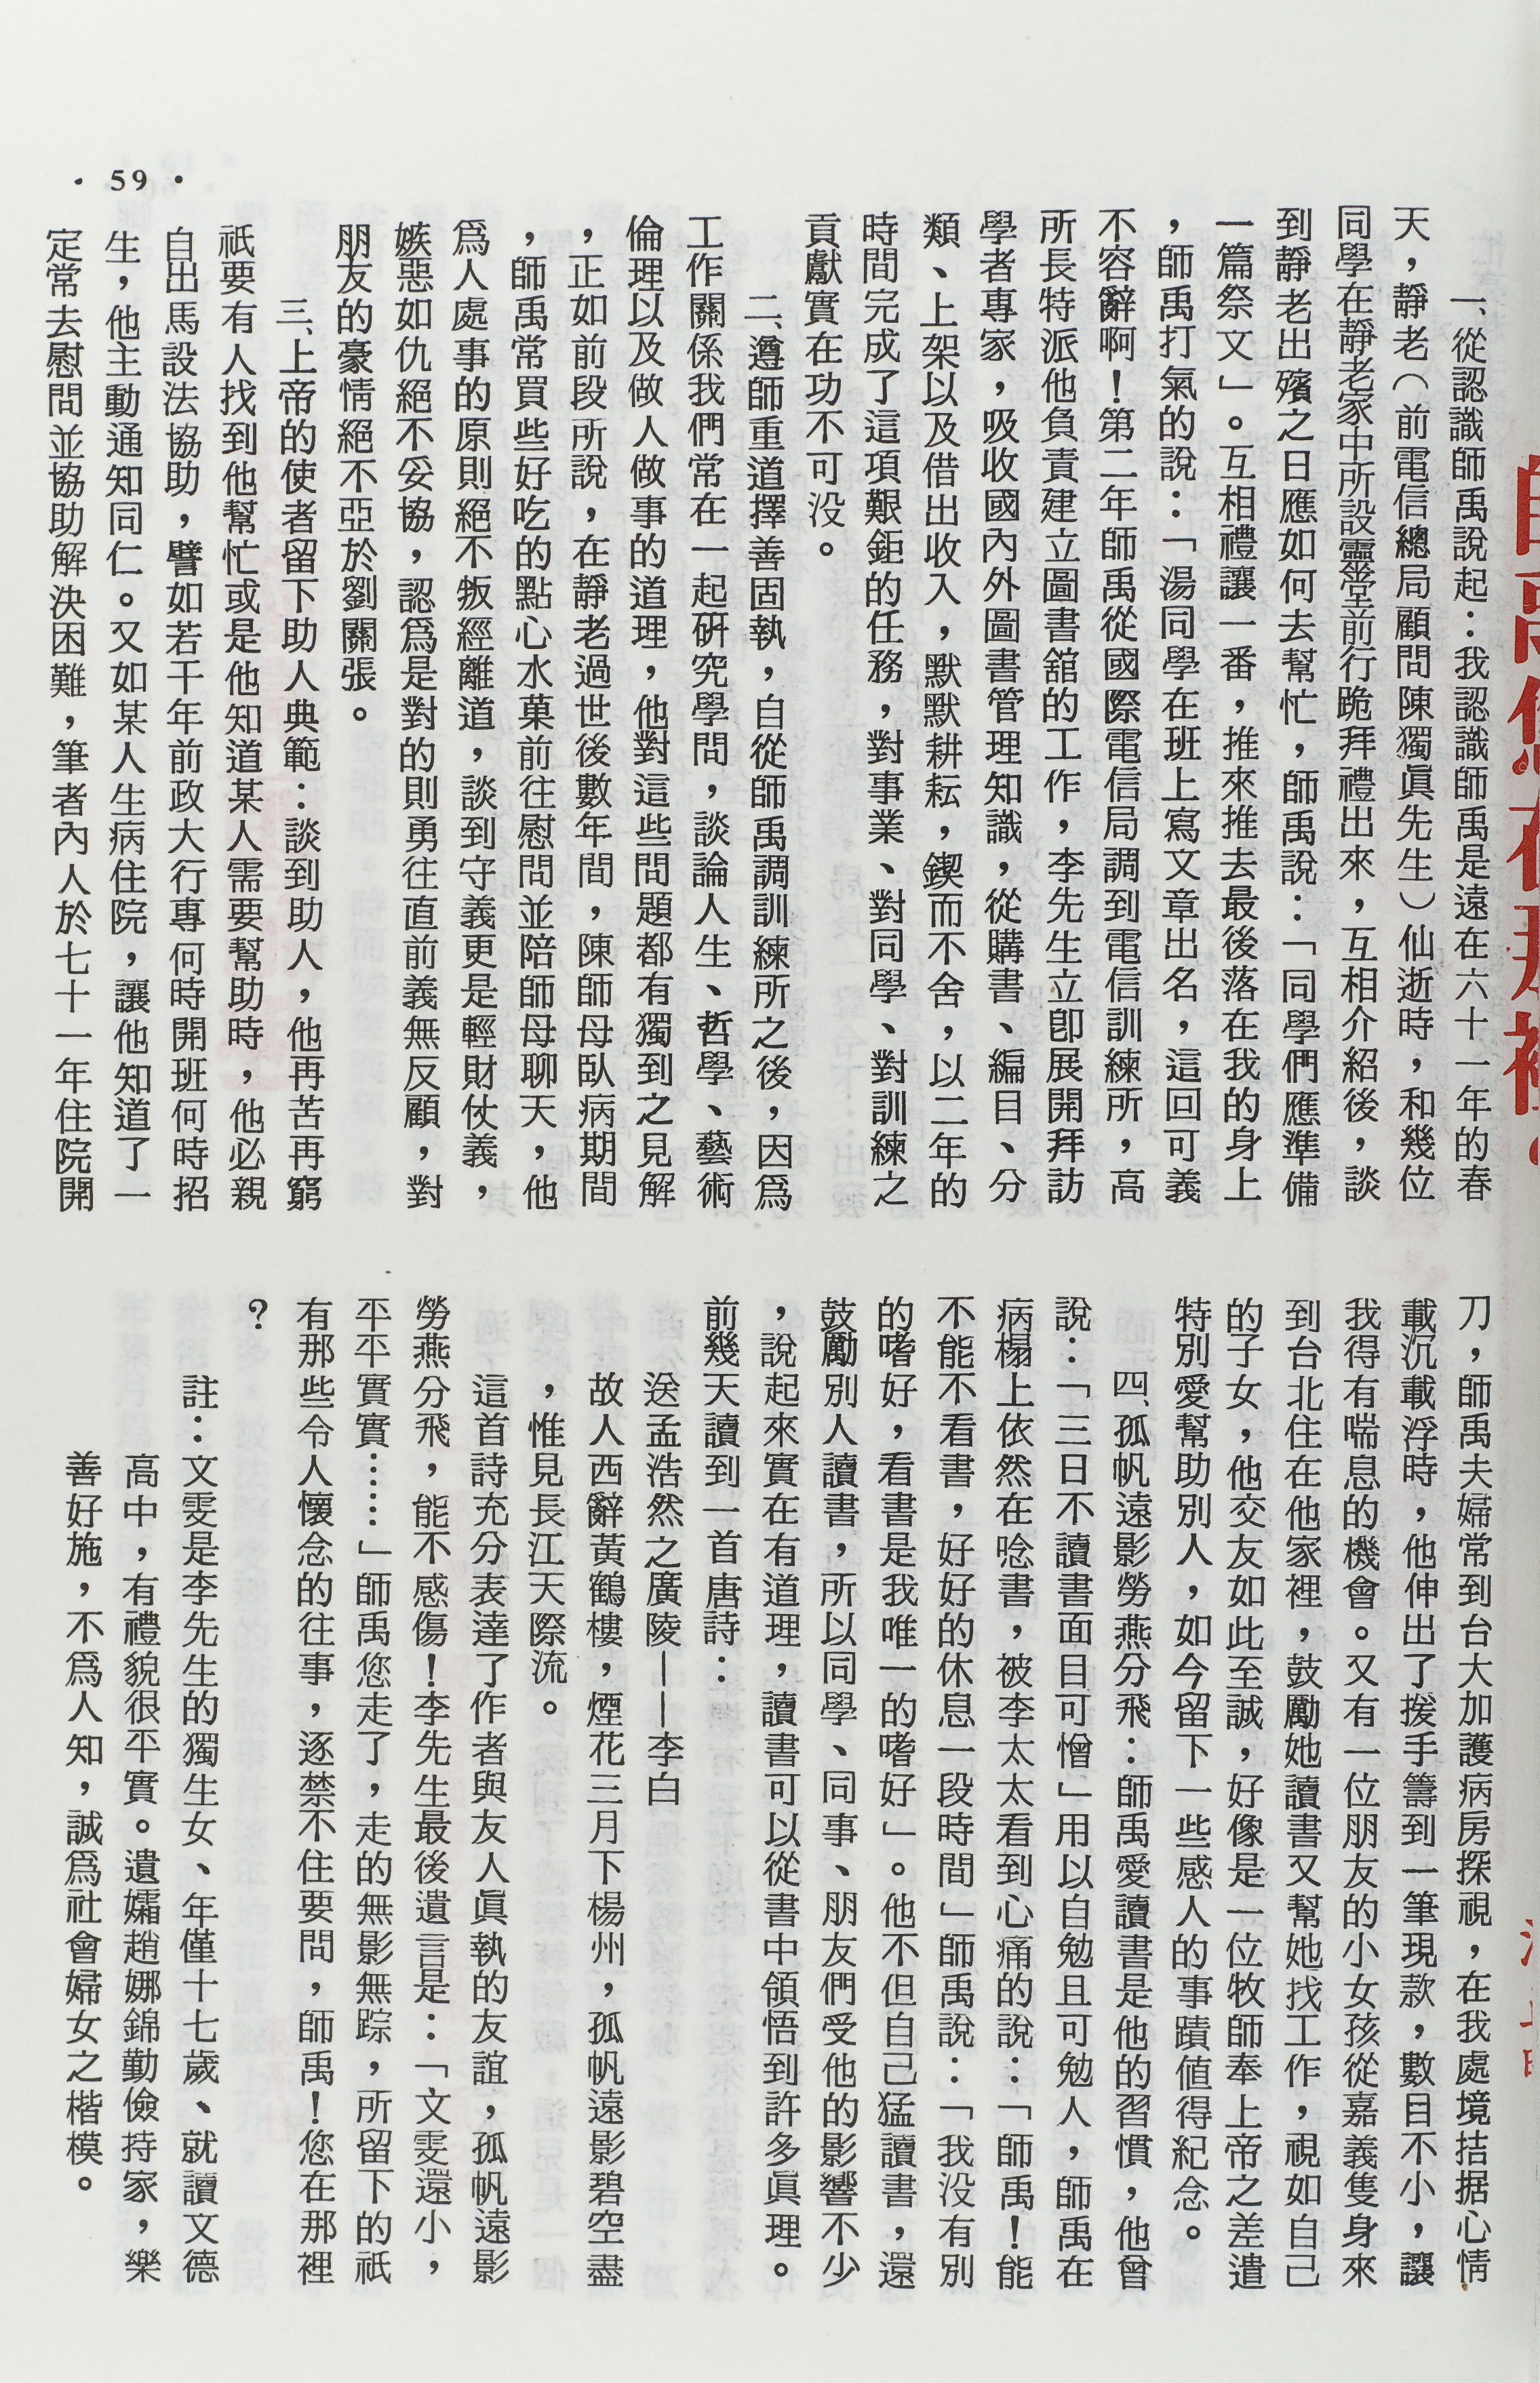 師禹您在那裡？
一、從認識師禹說起：我認識師禹是遠在六十一年的春
天，靜老（前電信總局顧問陳獨眞先生）仙逝時，和幾位
同學在靜老家中所設靈堂前行跪拜禮出來，互相介紹後，談
到靜老出殯之日應如何去幫忙，師禹說：「同學們應準備
一篇祭文」。互相禮讓一番，推來推去最後落在我的身上
，師禹打氣的說：「湯同學在班上寫文章出名，這回可義
不容辭啊！第二年師禹從國際電信局調到電信訓練所，高
所長特派他負責建立圖書舘的工作，李先生立卽展開拜訪
學者專家，吸收國內外圖書管理知識，從購書、編目、分
類、上架以及借出收入，默默耕耘，鍥而不舍，以二年的
時間完成了這項艱鉅的任務，對事業、對同學、對訓練之
貢獻實在功不可没。
二、遵師重道擇善固執，自從師禹調訓練所之後，因爲
工作關係我們常在一起硏究學問，談論人生、哲學、藝術
倫理以及做人做事的道理，他對這些問題都有獨到之見解
，正如前段所說，在靜老過世後數年間，陳師母臥病期間
，師禹常買些好吃的點心水菓前往慰問並陪師母聊天，他
爲人處事的原則絕不叛經離道，談到守義更是輕財仗義，
嫉惡如仇絕不妥協，認爲是對的則勇往直前義無反顧，對
朋友的豪情絕不亞於劉關張。
三、上帝的使者留下助人典範：談到助人，他再苦再窮
祇要有人找到他幫忙或是他知道某人需要幫助時，他必親
自出馬設法協助，譬如若干年前政大行專何時開班何時招
生，他主動通知同仁。又如某人生病住院，讓他知道了一
定常去慰問並協助解決困難，筆者內人於七十一年住院開
刀，師禹夫婦常到台大加護病房探視，在我處境拮据心情
載沉載浮時，他伸出了援手籌到一筆現款，數目不小，讓
我得有喘息的機會。又有一位朋友的小女孩從嘉義隻身來
到台北住在他家裡，鼓勵她讀書又幫她找工作，視如自己
的子女，他交友如此至誠，好像是一位牧師奉上帝之差遣
特別愛幫助別人，如今留下一些感人的事蹟值得紀念。
四、孤帆遠影勞燕分飛：師禹愛讀書是他的習慣，他曾
說：「三日不讀書面目可憎」用以自勉且可勉人，師禹在
病榻上依然在唸書，被李太太看到心痛的說：「師禹！能
不能不看書，好好的休息一段時間」師禹說：「我没有別
的嗜好，看書是我唯一的嗜好」。他不但自己猛讀書，還
鼓勵別人讀書，所以同學、同事、朋友們受他的影響不少
，說起來實在有道理，讀書可以從書中領悟到許多眞理。
前幾天讀到一首唐詩：
送孟浩然之廣陵——李白
故人西辭黃鶴樓，煙花三月下楊州，孤帆遠影碧空盡
，惟見長江天際流。
這首詩充分表達了作者與友人眞執的友誼，孤帆遠影
勞燕分飛，能不感傷！李先生最後遺言是：「文雯還小，
平平實實……」師禹您走了，走的無影無踪，所留下的祇
有那些令人懷念的往事，逐禁不住要問，師禹！您在那裡
？
註：文雯是李先生的獨生女、年僅十七歲、就讀文德
高中，有禮貌很平實。遺孀趙娜錦勤儉持家，樂
善好施，不爲人知，誠爲社會婦女之楷模。
• 59 •